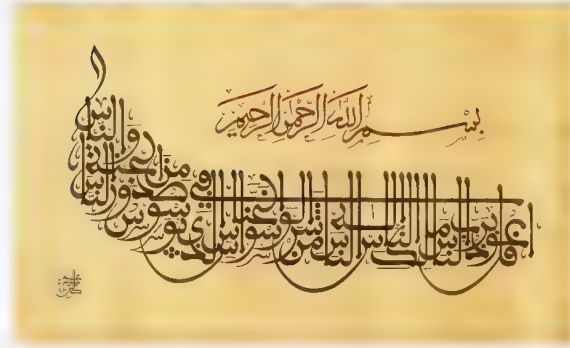 بِسْمِ اللَّهِ الرَّحْمَنِ الرَّحِيمِ
قل أعوذ برب الناس ملك الناس إله الناس من شر الوسواس الخناس الذي يوسوس في صدور الناس من الجنة والناس